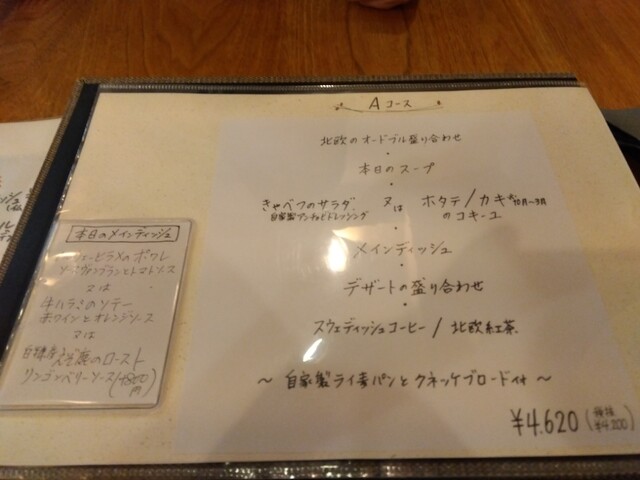 Aコース
北欧のオードブル盛り合わせ
・
本日のスープ
・
きゃべつのサラダ 又は ホタテ/カキ※10月〜3月
自家製アンチョビドレッシング のコキーユ
・
メインディッシュ
・
デザートの盛り合わせ
・
スウェディッシュコーヒー / 北欧紅茶
〜 自家製ライ麦パンとクネッケブロード付 〜
¥4.620(税抜¥4.200)
本日のメインディッシュ
ヒラメのポワレ
ソースヴァンブランとトマトソース
又は
牛ハラミのソテー
赤ワインとオレンジソース
又は
えぞ鹿のロースト
リンゴンベリーソース(+800円)